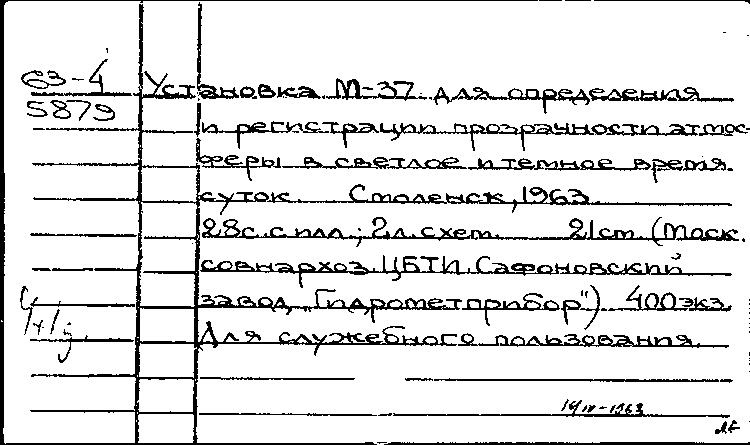 63-4 Установка М-37 для определения
5879
и регистрации прозрачности атмос-
феры в светлое и темное время
суток. Смоленск, 1963.
28с. с илл.; 2л. схем. 21см. (Моск.
совнархоз. ЦБТИ. Сафоновский
завод "Гидрометприбор") 400 экз.
Для служебного пользования.
-1963